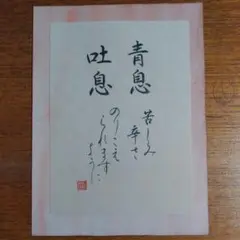 青息
吐息
苦しみ
辛さ
のりこえ
られます
ように